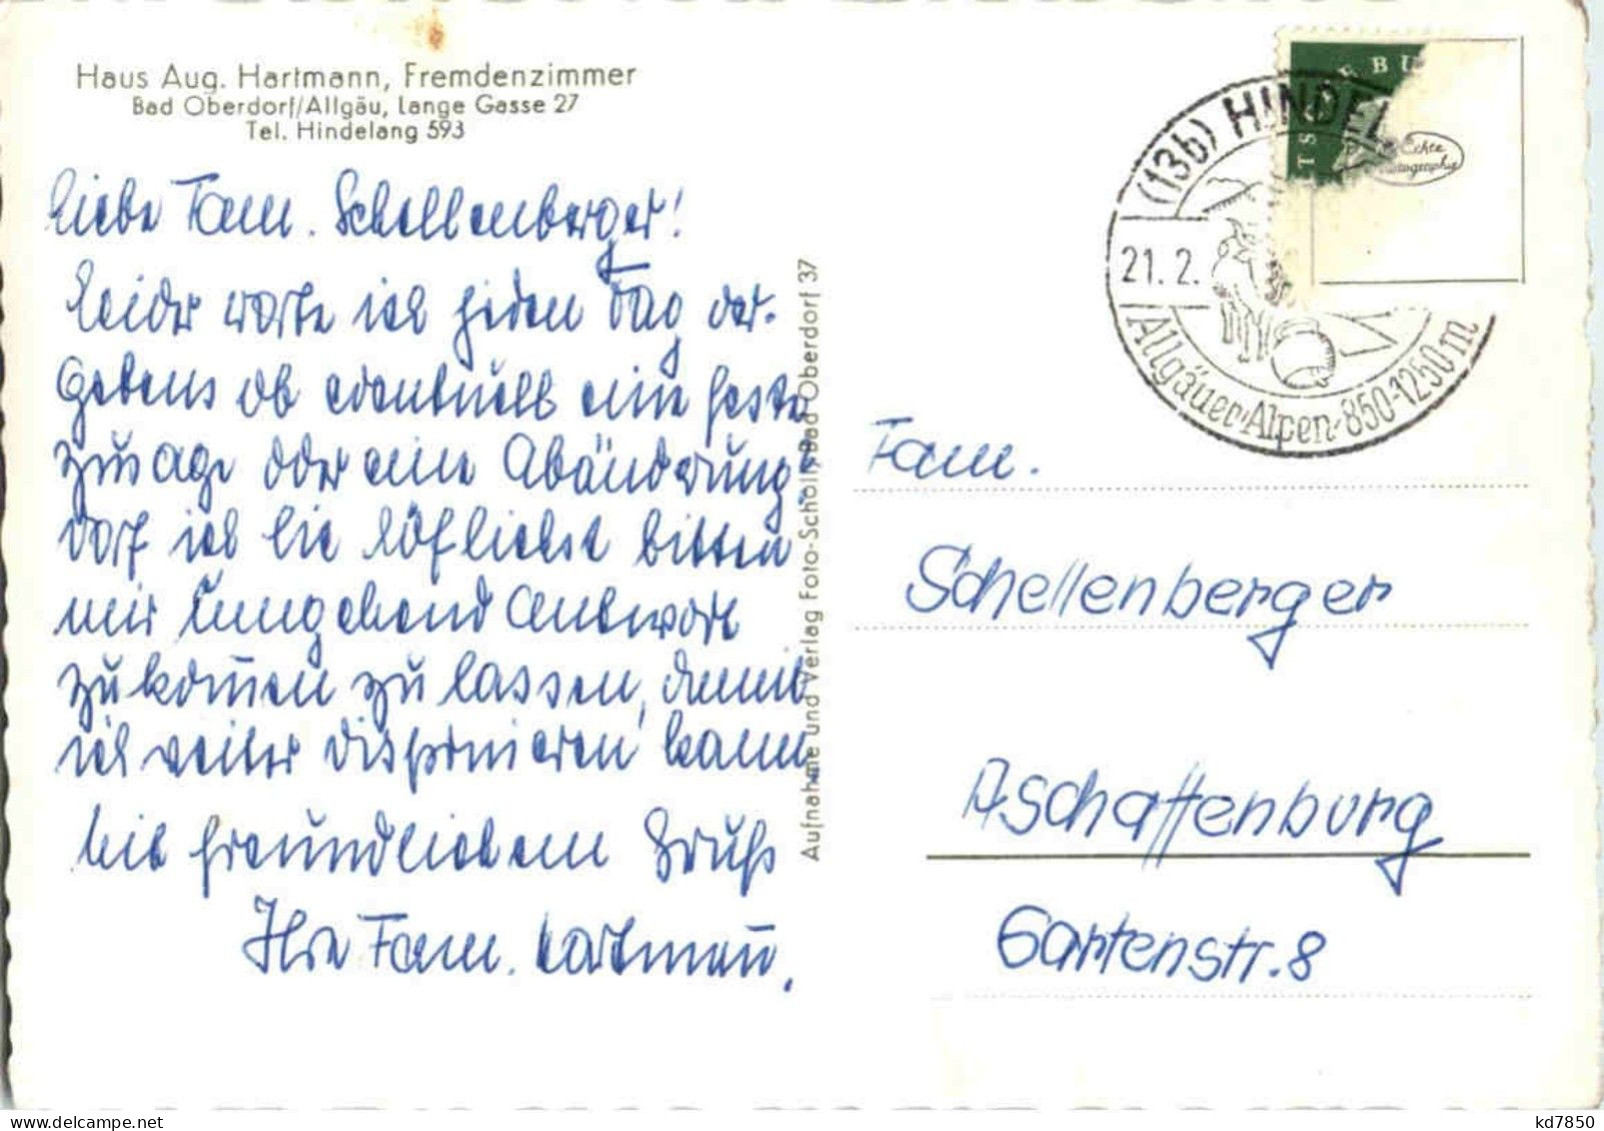 Haus Aug. Hartmann, Fremdenzimmer
Bad Oberdorf/Allgäu, Lange Gasse 27
Tel. Hindelang 593
Liebe Fam. Schellenberger!
Leider warte ich jeden Tag ver-
gebens ob eventuell eine feste
zusage oder eine Abänderung.
darf ich Sie höflichst bitten
mir umgehend Antwort
zukomen zu lassen, damit
ich weiter disponieren kann.
Mit freundlichem Gruß
Ihre Fam. Hartmann.
Aufnahme und Verlag Foto-Scholl, Bad Oberdorf 37
(13b) HINDEL
21. 2.
Allgäuer-Alpen-850-1250m
TSCHE BU
Echte
Fotographie
Fam.
Schellenberger
Aschaffenburg
Gartenstr. 8
kd7850
delcampe.net